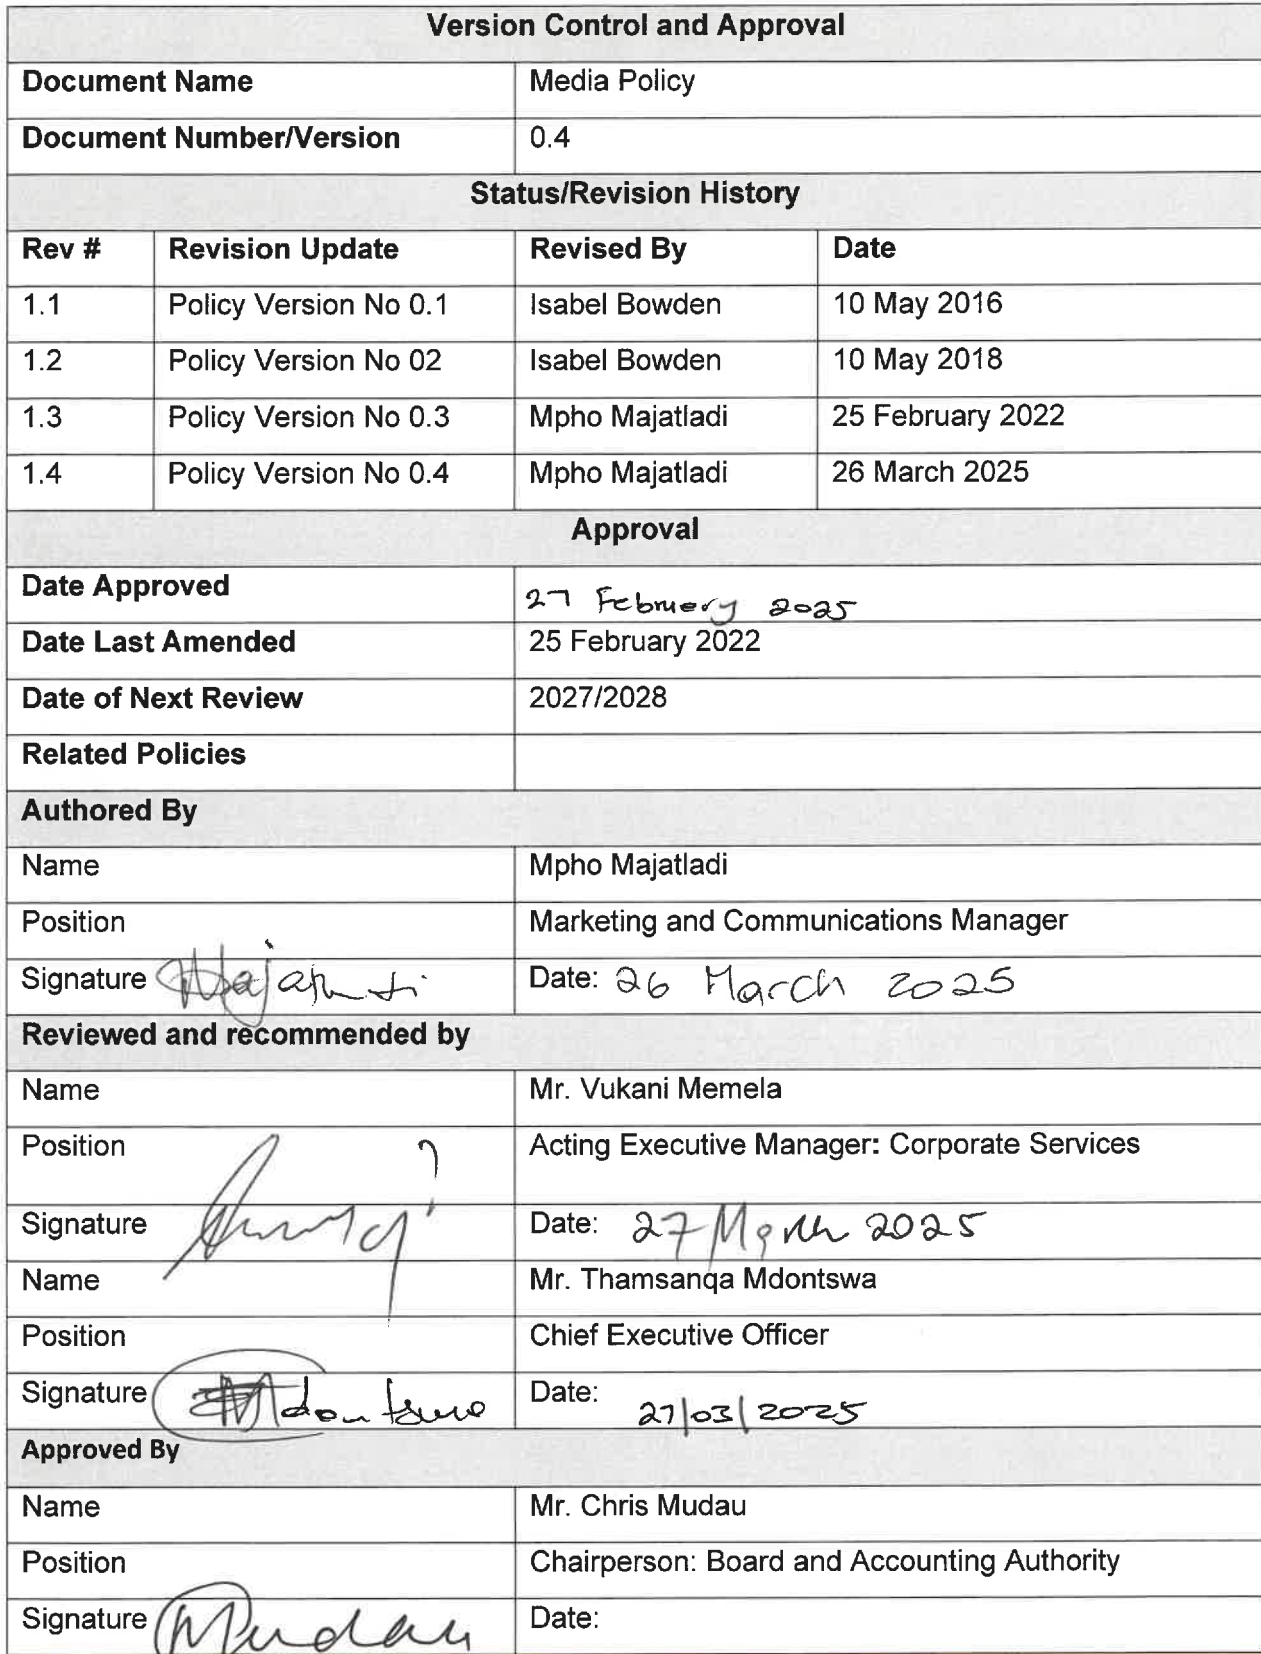 Version Control and Approval
Document Name Media Policy
Document Number/Version 0.4
Status/Revision History
Rev # Revision Update Revised By Date
1.1 Policy Version No 0.1 Isabel Bowden 10 May 2016
1.2 Policy Version No 02 Isabel Bowden 10 May 2018
1.3 Policy Version No 0.3 Mpho Majatladi 25 February 2022
1.4 Policy Version No 0.4 Mpho Majatladi 26 March 2025
Approval
Date Approved 27 February 2025
Date Last Amended 25 February 2022
Date of Next Review 2027/2028
Related Policies
Authored By
Name Mpho Majatladi
Position Marketing and Communications Manager
Signature Date: 26 March 2025
Reviewed and recommended by
Name Mr. Vukani Memela
Position Acting Executive Manager: Corporate Services
Signature Date: 27 March 2025
Name Mr. Thamsanqa Mdontswa
Position Chief Executive Officer
Signature Mdontswa Date: 27/03/2025
Approved By
Name Mr. Chris Mudau
Position Chairperson: Board and Accounting Authority
Signature Mudau Date: